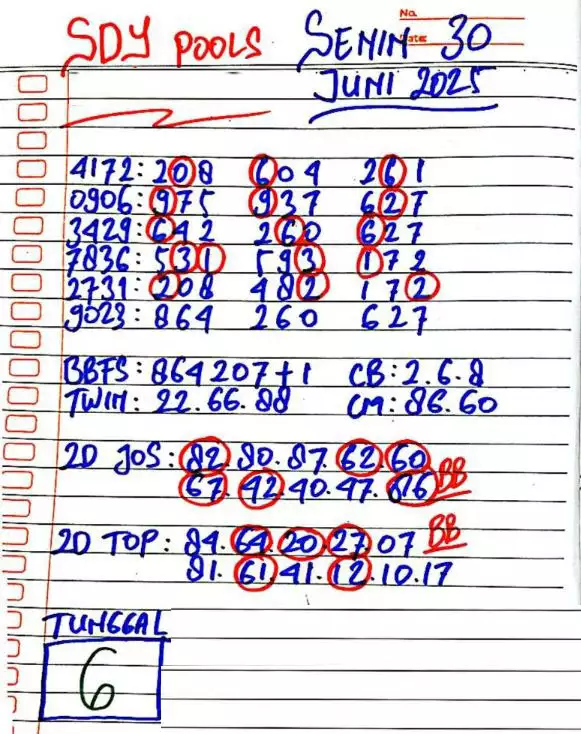 No.
Date:
SDY POOLS SENIN 30
JUNI 2025
4172: 208 604 261
0906: 975 937 627
3429: 642 260 627
7836: 531 593 172
2731: 208 482 172
9023: 864 260 627
BBFS: 864207+1 CB: 2.6.8
TWIN: 22.66.88 CM: 86.60
2D JOS: 82.80.87.62.60
67.42.40.47.616 BB
2D TOP: 84.64.20.27.07 BB
81.61.41.12.10.17
TUNGGAL
6